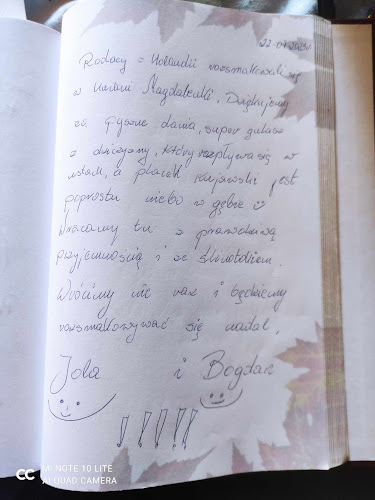 22-07-2021
Rodacy z Holandii rozsmakowali się
w kuchni Magdalenki, Dziękujemy
za pyszne dania, super gulasz
z dziczyzny, który rozpływa się w
ustach, a placek kujawski jest
poprostu niebo w gębie
Wracamy tu z prawdziwą
przyjemnością i ze ślinotokiem.
Wrócimy nie raz i będziemy
rozsmakowywać się nadal,
Jola i Bogdan
!!!!!
MI NOTE 10 LITE
AI QUAD CAMERA